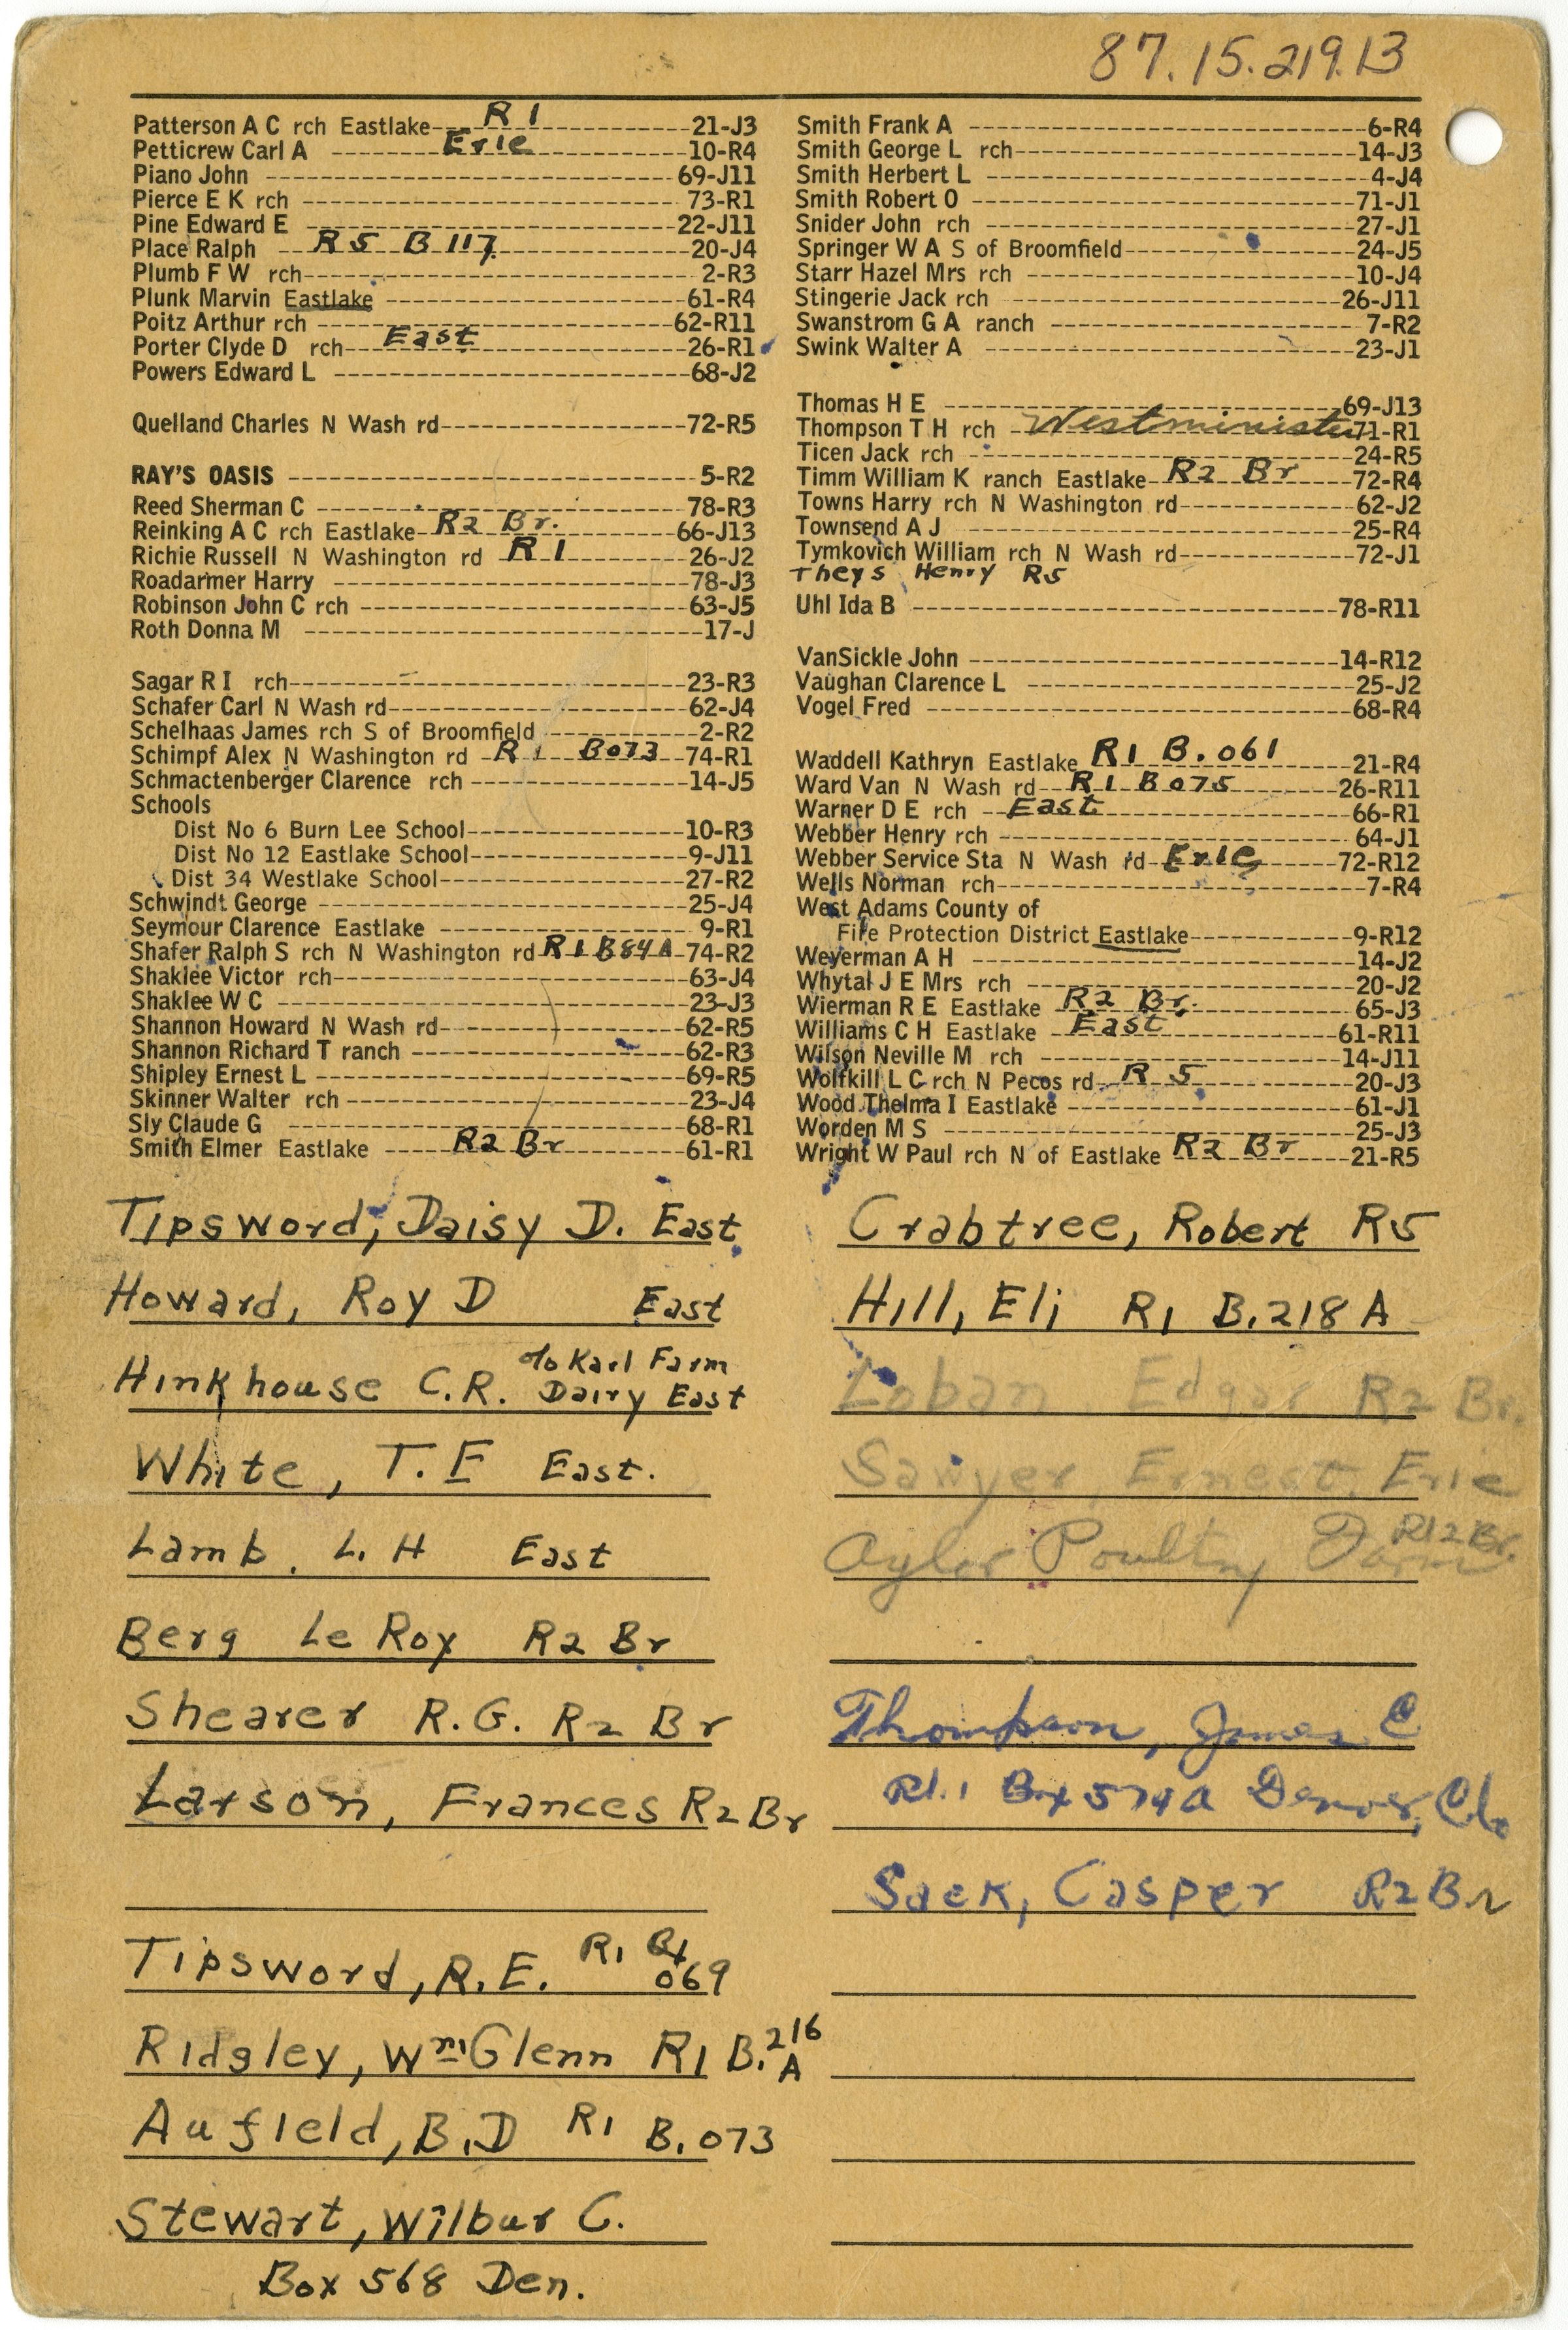 87.15.219.13
Patterson A C rch Eastlake R1 21-J3
Petticrew Carl A Erie 10-R4
Piano John 69-J11
Pierce E K rch 73-R1
Pine Edward E 22-J11
Place Ralph R5 B 117 20-J4
Plumb F W rch 2-R3
Plunk Marvin Eastlake 61-R4
Poitz Arthur rch 62-R11
Porter Clyde D rch East 26-R1
Powers Edward L 68-J2
Quelland Charles N Wash rd 72-R5
RAY'S OASIS 5-R2
Reed Sherman C 78-R3
Reinking A C rch Eastlake R2 Br. 66-J13
Richie Russell N Washington rd R1 26-J2
Roadarmer Harry 78-J3
Robinson John C rch 63-J5
Roth Donna M 17-J
Sagar R I rch 23-R3
Schafer Carl N Wash rd 62-J4
Schelhaas James rch S of Broomfield 2-R2
Schimpf Alex N Washington rd R1 B073 74-R1
Schmactenberger Clarence rch 14-J5
Schools
Dist No 6 Burn Lee School 10-R3
Dist No 12 Eastlake School 9-J11
Dist 34 Westlake School 27-R2
Schwindt George 25-J4
Seymour Clarence Eastlake 9-R1
Shafer Ralph S rch N Washington rd R1 B84A 74-R2
Shaklee Victor rch 63-J4
Shaklee W C 23-J3
Shannon Howard N Wash rd 62-R5
Shannon Richard T ranch 62-R3
Shipley Ernest L 69-R5
Skinner Walter rch 23-J4
Sly Claude G 68-R1
Smith Elmer Eastlake R2 Br 61-R1
Smith Frank A 6-R4
Smith George L rch 14-J3
Smith Herbert L 4-J4
Smith Robert O 71-J1
Snider John rch 27-J1
Springer W A S of Broomfield 24-J5
Starr Hazel Mrs rch 10-J4
Stingerie Jack rch 26-J11
Swanstrom G A ranch 7-R2
Swink Walter A 23-J1
Thomas H E 69-J13
Thompson T H rch Westminister 71-R1
Ticen Jack rch 24-R5
Timm William K ranch Eastlake R2 Br 72-R4
Towns Harry rch N Washington rd 62-J2
Townsend A J 25-R4
Tymkovich William rch N Wash rd 72-J1
Theys Henry R5
Uhl Ida B 78-R11
VanSickle John 14-R12
Vaughan Clarence L 25-J2
Vogel Fred 68-R4
Waddell Kathryn Eastlake R1 B.061 21-R4
Ward Van N Wash rd R1 B075 26-R11
Warner D E rch East 66-R1
Webber Henry rch 64-J1
Webber Service Sta N Wash rd Erie 72-R12
Wells Norman rch 7-R4
West Adams County of
Fire Protection District Eastlake 9-R12
Weyerman A H 14-J2
Whytal J E Mrs rch 20-J2
Wierman R E Eastlake R2 Br. 65-J3
Williams C H Eastlake East 61-R11
Wilson Neville M rch 14-J11
Wolfkill L C rch N Pecos rd R 5 20-J3
Wood Thelma I Eastlake 61-J1
Worden M S 25-J3
Wright W Paul rch N of Eastlake R2 Br 21-R5
Tipsword, Daisy D. East
Howard, Roy D East
Hinkhouse C.R. c/o Karl Farm
Dairy East
White, T. F East.
Lamb. L. H East
Berg Le Roy R2 Br
Shearer R.G. R2 Br
Larson, Frances R2 Br
Tipsword, R.E. R1 Bx
069
Ridgley, Wm Glenn R1 B. 216
A
Aufield, B.D R1 B.073
Stewart, Wilbur C.
Box 568 Den.
Crabtree, Robert R5
Hill, Eli R1 B.218 A
Loban Edgar R2 Br.
Sawyer, Ernest. Erie
Oyler Poultry Farm R12 Br.
Thompson, James C
Rt.1 Bx 574A Denver, Clo
Sack, Casper R2 Br